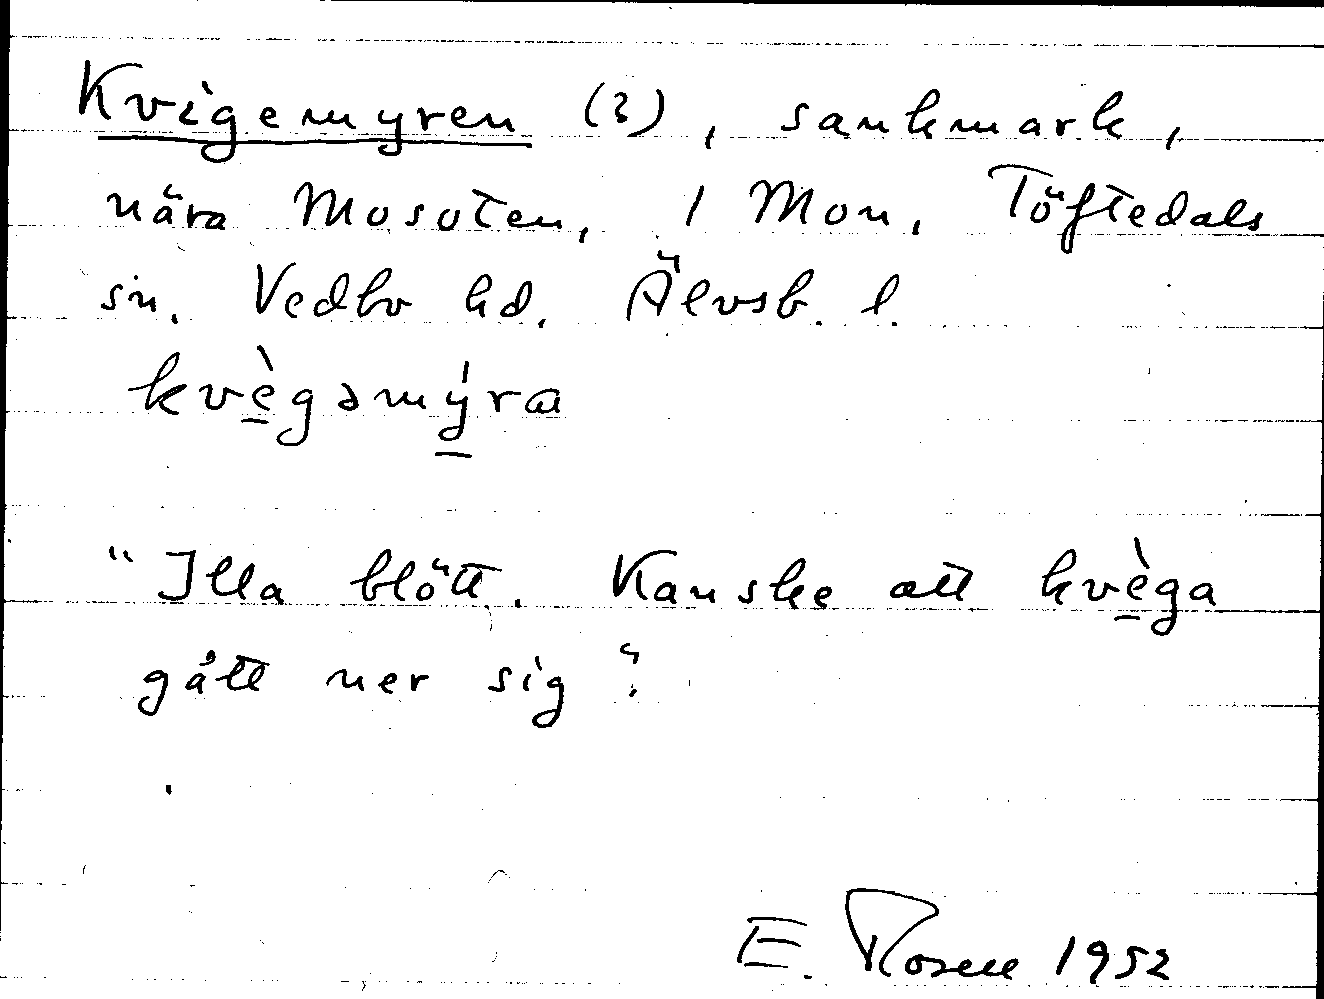 Kvigemyren (?), sankmark,
nära Mosoten, 1 Mon, Töftedals
sn. Vedbo hd. Älvsb. l.
kvè̱gəmý̱ra
"Illa blött. Kanske att kvè̱ga
gått ner sig".
E. Rosell 1952